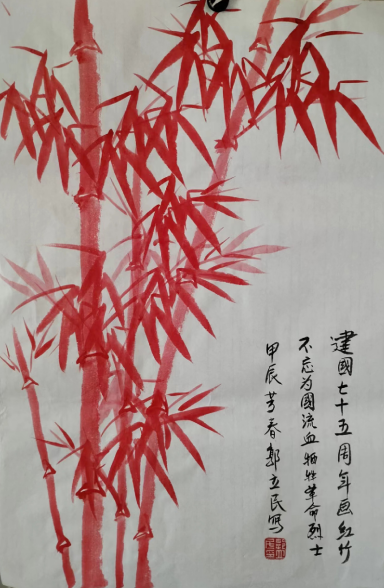 建國七十五周年画红竹
不忘为國流血牺牲革命烈士
甲辰芳春郭立民写